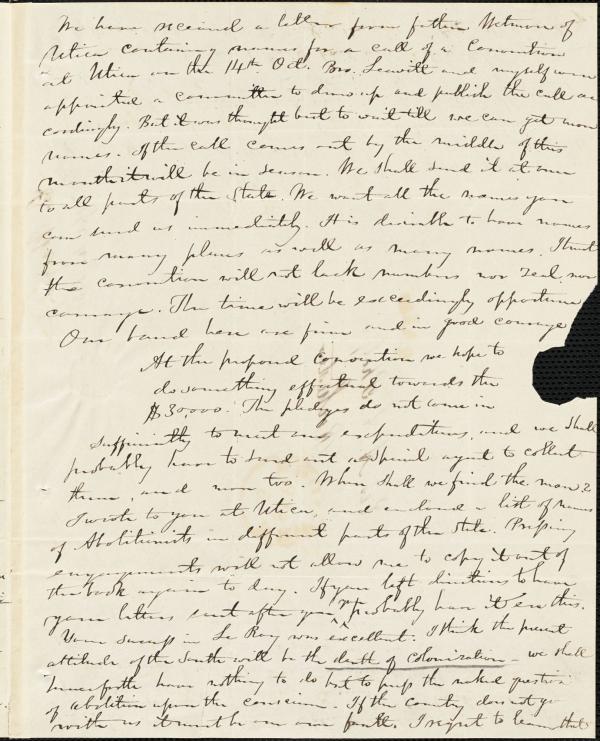 We have received a letter from father Wetmore of
Utica containing names for a call of a Convention
at Utica on the 14th Oct. Bro. Leavitt and myself were
appointed a committee to draw up and publish the call ac
cordingly. But it was thought best to wait till we can get more
names. If the call comes out by the middle of this
month it will be in season. We shall send it at once
to all parts of the State. We want all the names you
can send us immediately. It is desirable to have names
from many places as well as many names. I trust
the convention will not lack numbers nor zeal nor
courage. The time will be exceedingly opportune
Our band here are firm and in good courage
At the proposed convention we hope to
do something effectual towards the
$30,000. The pledges do not come in
sufficiently to meet our expenditures, and we shall
probably have to send out a special agent to collect
them, and more too. Where shall we find the man?
I wrote to you at Utica, and enclosed a list of names
of Abolitionists in different parts of the State. Pressing
engagements will not allow me to copy it out of
the book again to day. If you left directions to have
your letters sent after you, probably have it ere this.
Your success in Le Roy was excellent. I think the present
attitude of the South will be the death of colonization - we shall
henceforth have nothing to do but to press the naked question
of abolition upon the conscience. If the country does not go
with us it must be our own fault. I regret to learn that